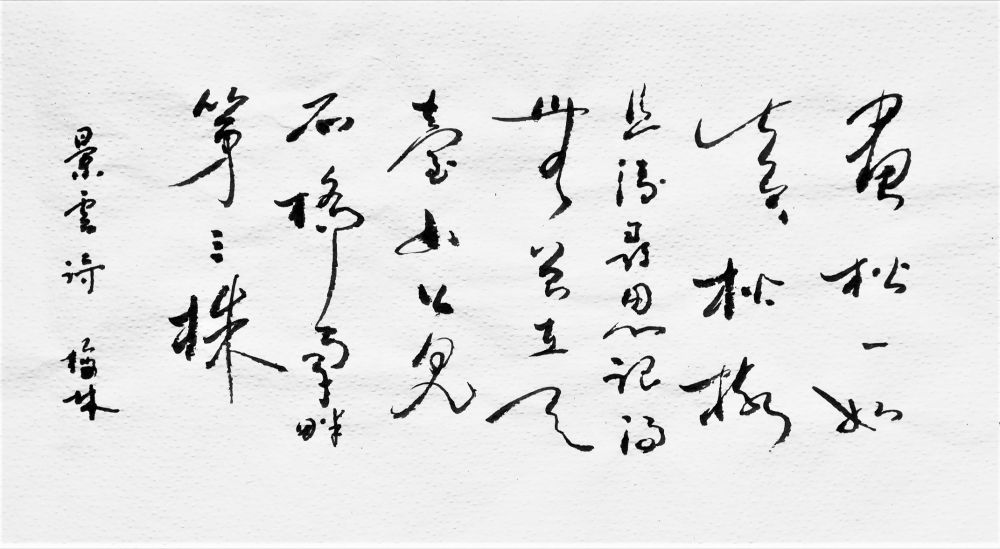 畫松一如
真松樹
且待尋思記得
無曾在天
臺山上見
石橋南畔
第三株
景雲詩 梅林